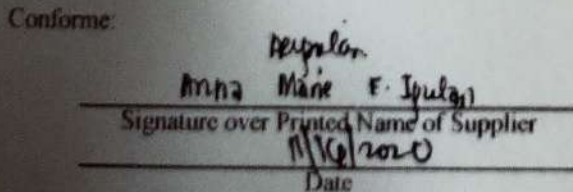 Conforme:
Anna Marie F. Igulan
Signature over Printed Name of Supplier
11/16/2020
Date